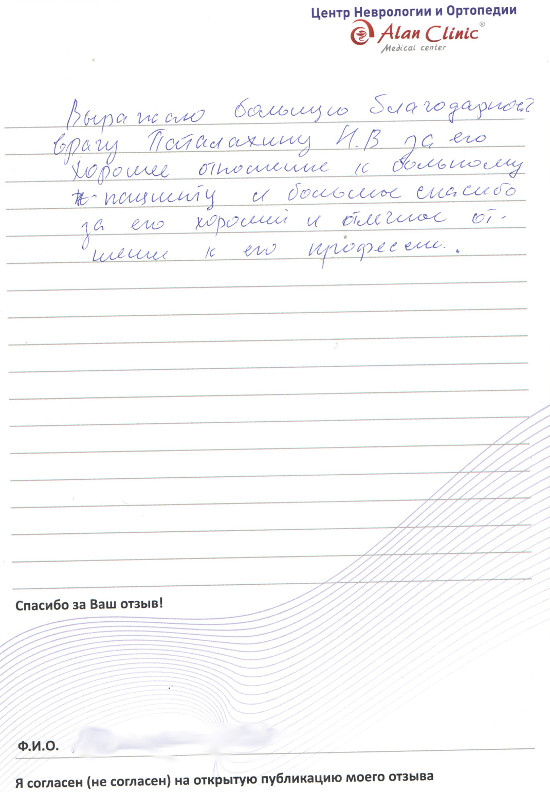 Центр Неврологии и Ортопедии
Alan Clinic®
Medical center
Выражаю большую благодарност
врачу Паталахину И.В за его
хорошее отношение к больному
пациенту и большое спасибо
за его хороший и отличное от-
шение к его професеии.
Спасибо за Ваш отзыв!
Ф.И.О.
Я согласен (не согласен) на открытую публикацию моего отзыва